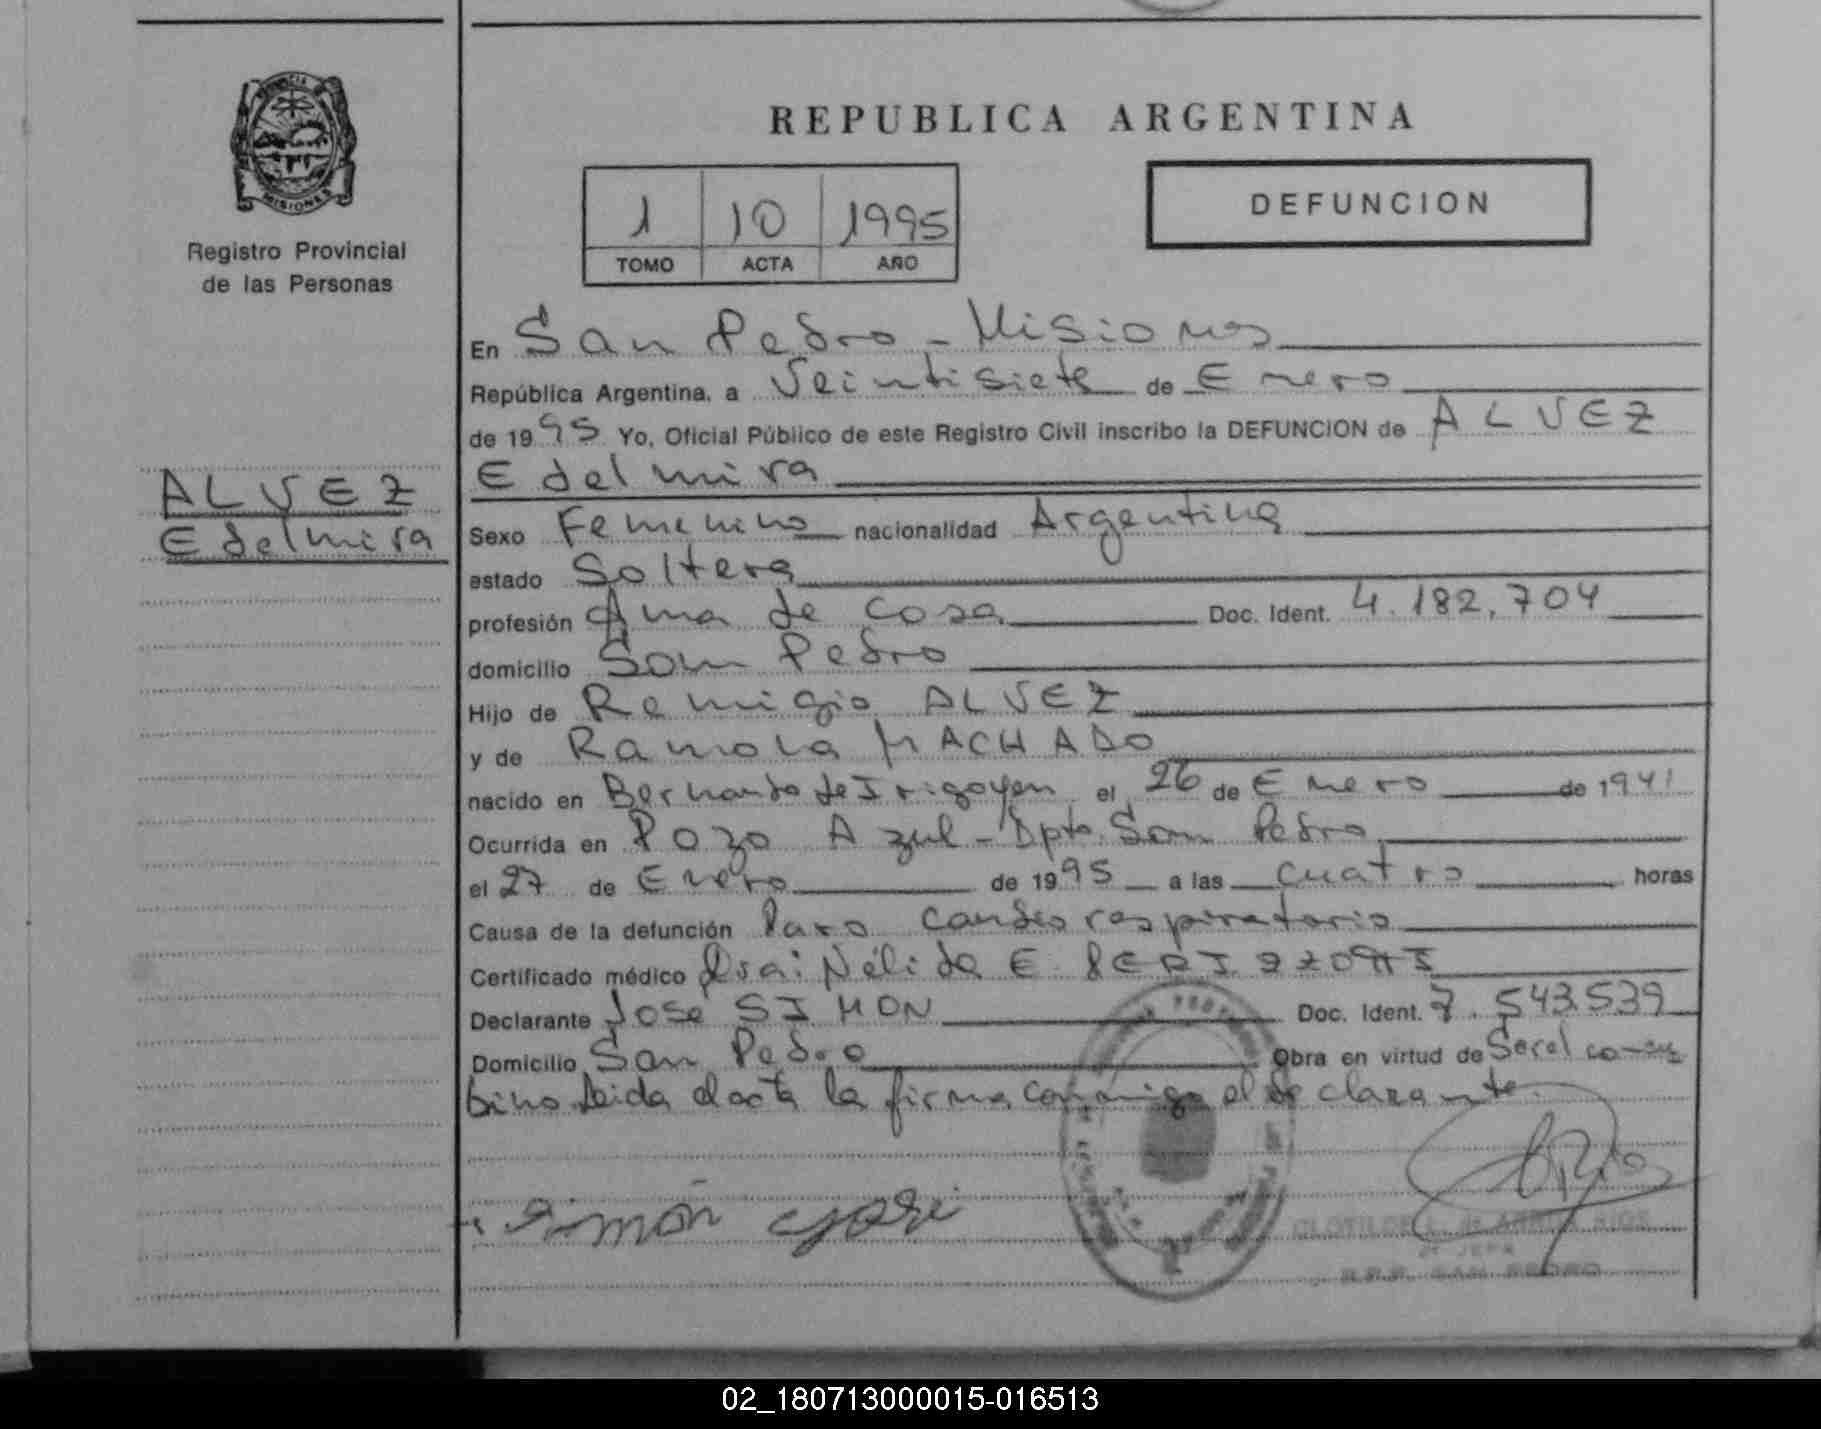 REPUBLICA ARGENTINA
MISIONES
Registro Provincial
de las Personas
DEFUNCION
1 10 1995
TOMO ACTA AÑO
En San Pedro - Misiones
República Argentina, a Veintisiete de Enero
de 1995 Yo, Oficial Público de este Registro Civil inscribo la DEFUNCION de ALVEZ
Edelmira
ALVEZ
Edelmira
Sexo Femenino nacionalidad Argentina
estado Soltera
profesión Ama de casa Doc. Ident. 4.182.704
domicilio San Pedro
Hijo de Remigio ALVEZ
y de Ramona MACHADO
nacido en Bernardo de Irigoyen el 26 de Enero de 1941
Ocurrida en Pozo Azul - Dpto. San Pedro
el 27 de Enero de 1995 a las cuatro horas
Causa de la defunción Paro cardio respiratorio
Certificado médico Dra: Nélida E.
Declarante Jose SIMON Doc. Ident. 7.543.539
Domicilio San Pedro Obra en virtud de
Leida el acta la firma conmigo el declarante.
Simón José
CLOTILDE
JEFA
R.P.P. SAN PEDRO
02_180713000015-016513